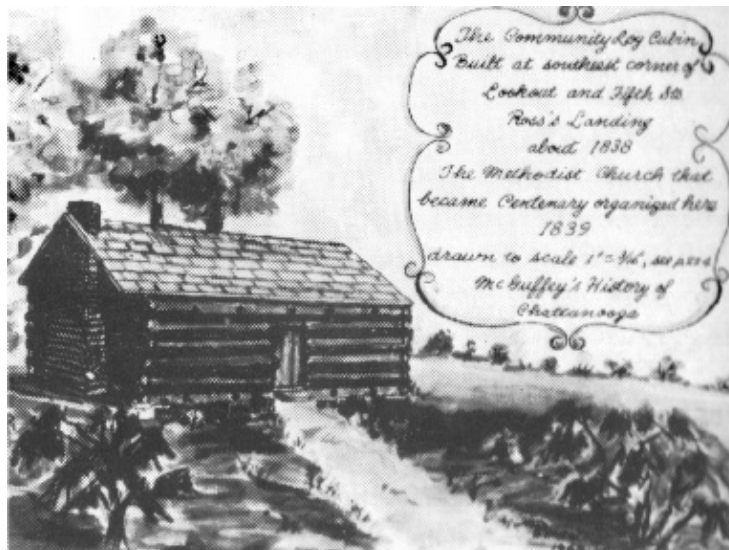 The Community Log Cabin
Built at southeast corner of
Lookout and Fifth Sts.
Ross's Landing
about 1838
The Methodist Church that
became Centenary organized here
1839
drawn to scale 1' = 3/16", see p.
McGuffey's History of
Chattanooga